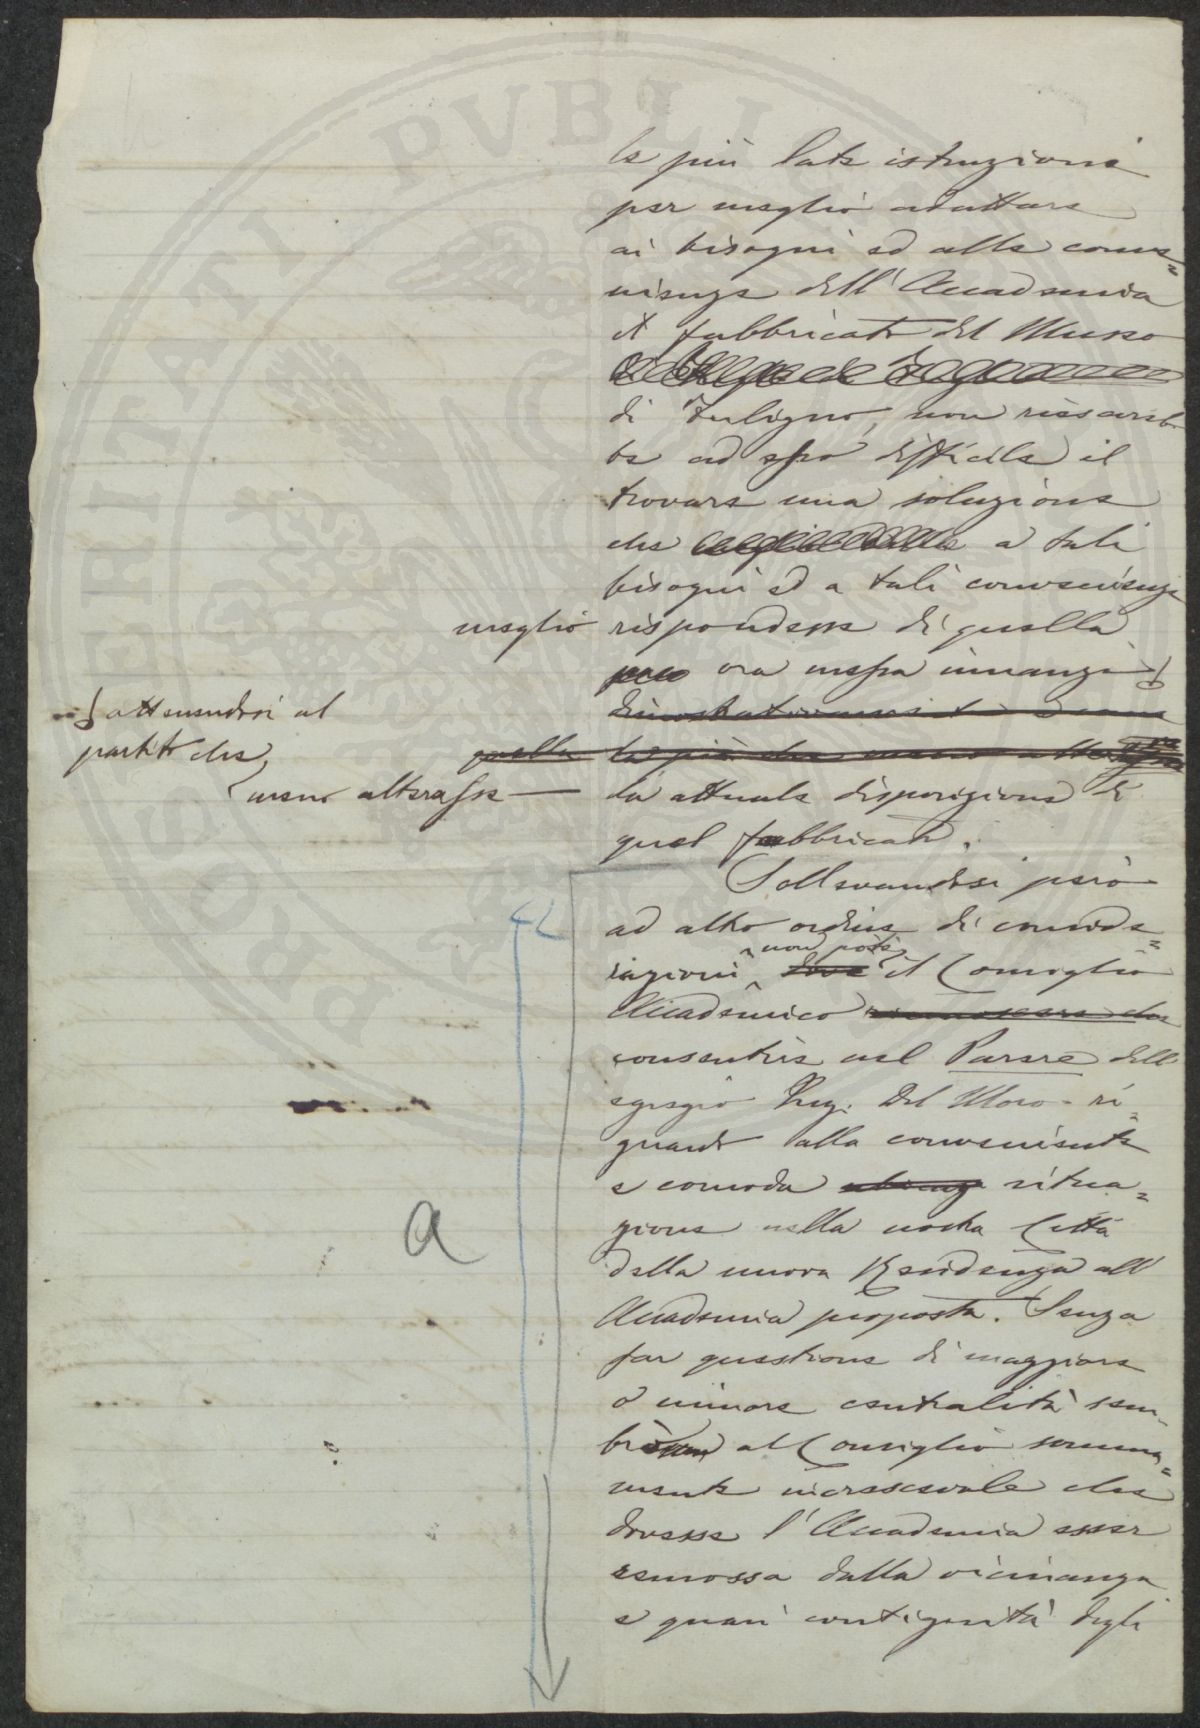 le più late istruzioni
per meglio adattare
ai bisogni ed alle conve=
nienze dell'Accademia
il fabbricato del Museo
di Fuligno, non riescireb-
be ad esso difficile il
trovare una soluzione
che a tali
bisogni ed a tali convenienze
meglio rispondesse di quella
ora messa innanzi
attenendosi al
partito che,
meno alterasse
la attuale disposizione di
quel fabbricato.
Sollevandosi però
ad altro ordine di conside=
razioni, non potè il Consiglio
Accademico
consentire nel Parere dell'
egregio Ing. Del Moro ri=
guardo alla conveniente
e comoda situa=
zione nella nostra Città
della nuova Residenza all'
Accademia proposta. Senza
far questione di maggiore
o minore centralità sem-
brò al Consiglio somma=
mente increscevole che
dovesse l'Accademia esser
remossa dalla vicinanza
e quasi contiguità degli
a
PVBLICAE
PROSPERITATI